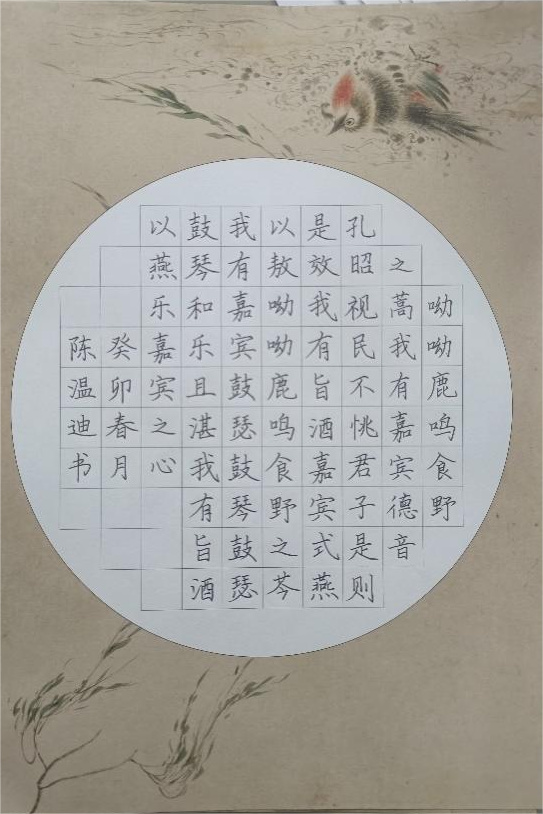 呦呦鹿鸣食野
之蒿我有嘉宾德音
孔昭视民不恌君子是则
是效我有旨酒嘉宾式燕
以敖呦呦鹿鸣食野之芩
我有嘉宾鼓瑟鼓琴鼓瑟
鼓琴和乐且湛我有旨酒
以燕乐嘉宾之心
癸卯春月
陈温迪书